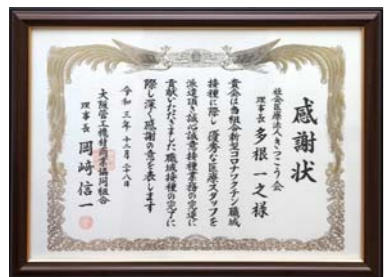 感謝状
社会医療法人きつこう会
理事長 多根一之様
貴会は当組合新型コロナワクチン職域
接種に際し優秀な医療スタッフを
派遣頂き誠心誠意接種業務の完遂に
貢献いただきました職域接種の完了に
際し深く感謝の意を表します
令和三年十二月二十八日
大阪管工機材商業協同組合
理事長 岡崎信一